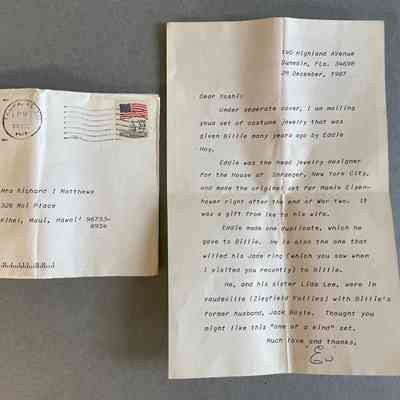 Mrs Richard I Matthews
326 Hol Place
Kihei, Maui, Hawai' 96753-
8934
140 Highland Avenue
Dunedin, Fla. 34698
28 December, 1987
Dear Yoshi:
Under seperate cover, I am mailing
you a set of costume jewelry that was
given Billie many years ago by Eddie
Hoy.
Eddie was the head jewelry designer
for the House of Shraeger, New York City,
and made the original set for Mamie Eisen-
hower right after the end of War two. It
was a gift from Ike to his wife.
Eddie made one duplicate, which he
gave to Billie. He is also the one that
willed his Jade ring (which you saw when
I visited you recently) to Billie.
He, and his sister Lida Lee, were in
vaudeville (Ziegfield Follies) with Billie's
former husband, Jack Boyle. Thought you
might like this "one of a kind" set.
Much love and thanks,